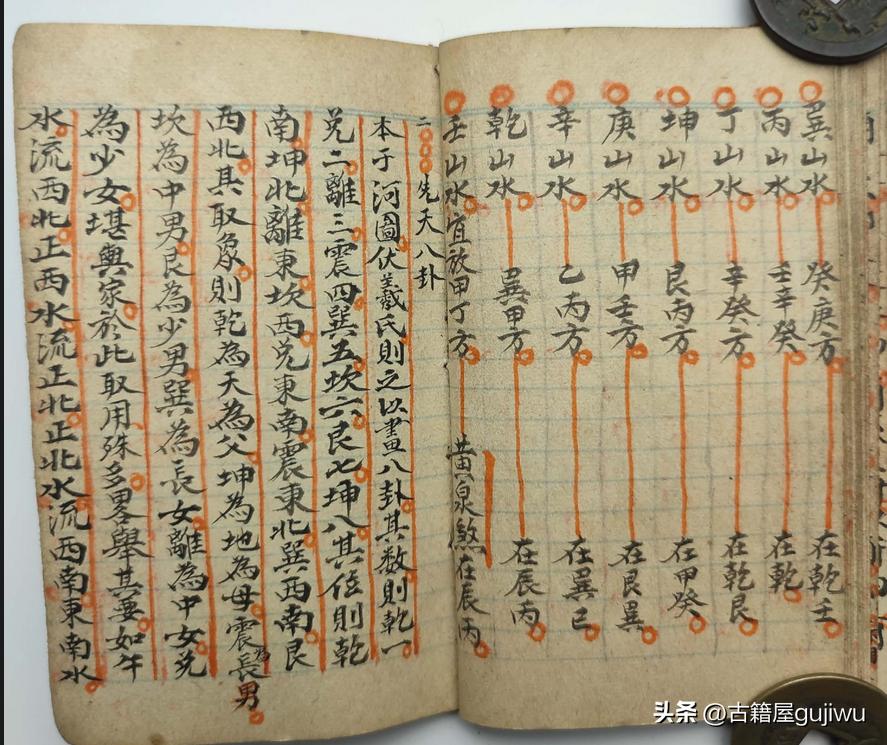 巽山水 癸庚方 在乾壬
丙山水 壬辛癸 在乾
丁山水 辛癸方 在乾艮
坤山水 艮丙方 在甲癸
庚山水 甲壬方 在艮巽
辛山水 乙丙方 在巽巳
乾山水 巽甲方 在辰丙
壬山水宜放甲丁方 黄泉煞在辰丙
二〇〇〇先天八卦
本于河圖伏羲氏則之以畫八卦其数則乾一
兌二離三震四巽五坎六艮七坤八其位則乾
南坤北離東坎西兌東南震東北巽西南艮
西北其取象則乾為天為父坤為地為母震為長男
坎為中男艮為少男巽為長女離為中女兌
為少女堪輿家於此取用殊多畧舉其要如午
水流西北正西水流正北正北水流西南東南水
头条 @古籍屋gujiwu